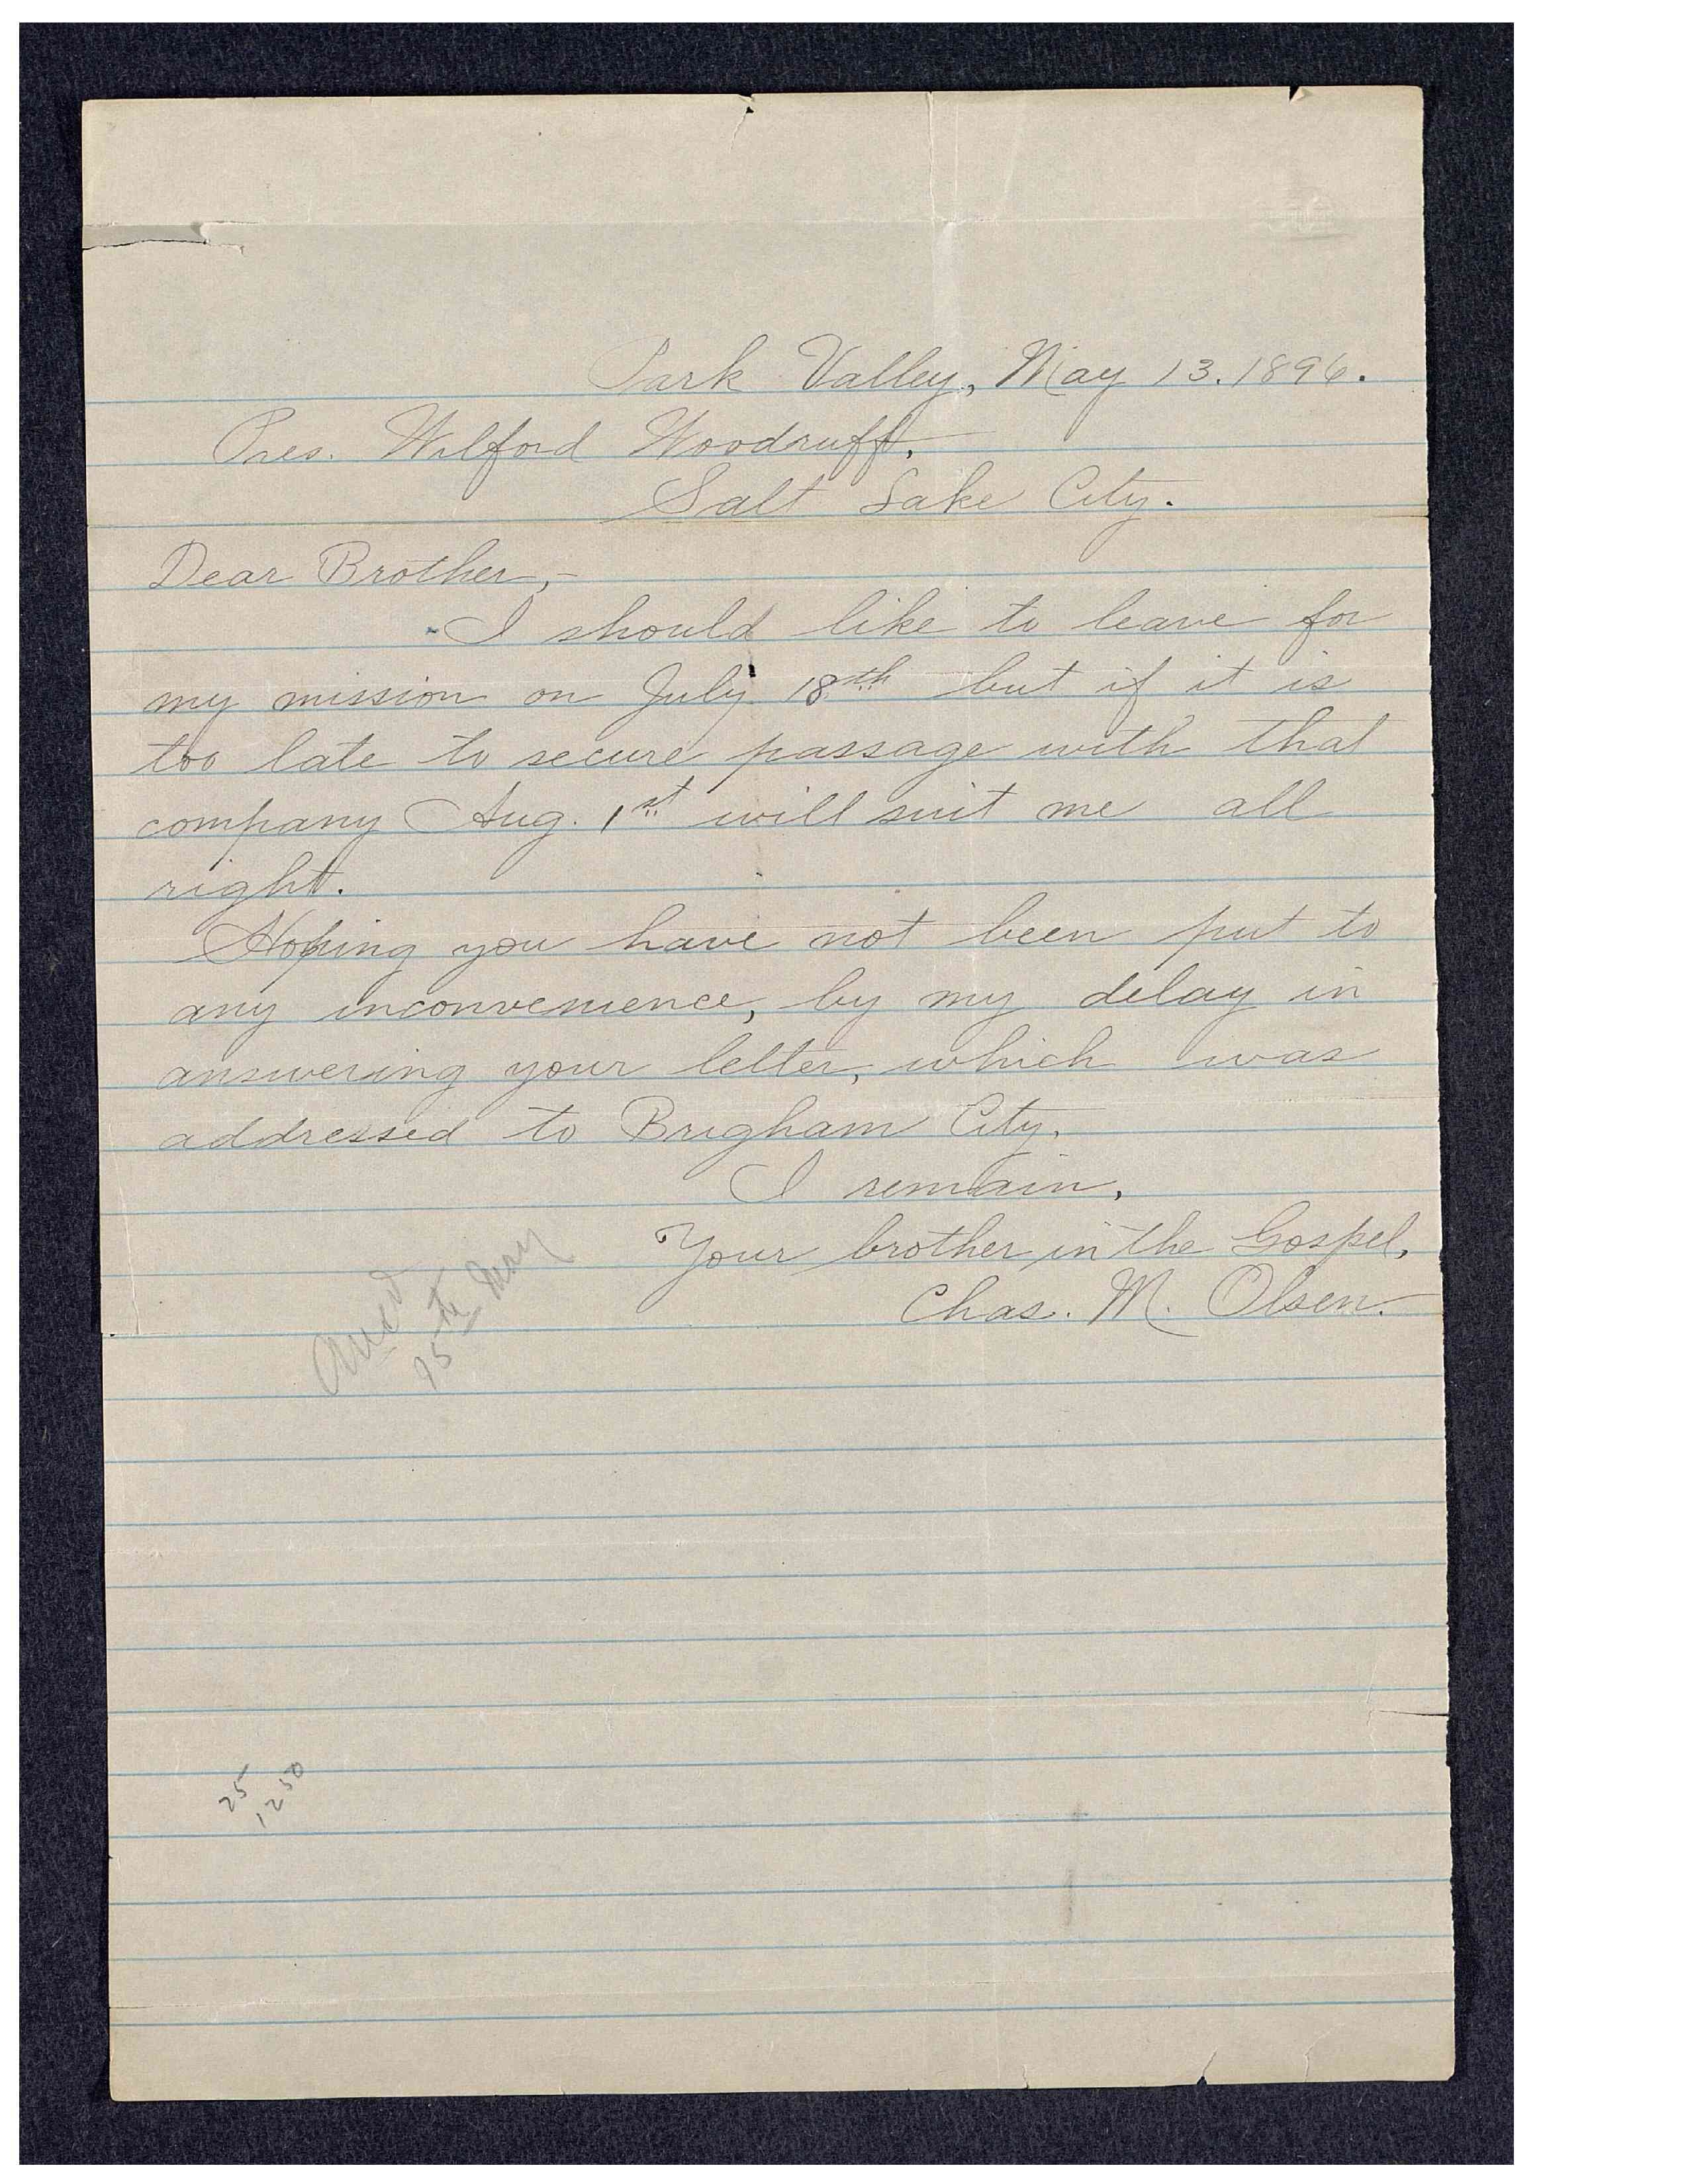 Park Valley, May 13. 1896.
Pres. Wilford Woodruff,
Salt Lake City.
Dear Brother,-
I should like to leave for
my mission on July 18th but if it is
too late to secure passage with that
company Aug. 1st will suit me all
right.
Hoping you have not been put to
any inconvenience, by my delay in
answering your letter, which was
addressed to Brigham City.
I remain,
Your brother in the Gospel,
Chas. M. Olsen.
15th May
25
1250